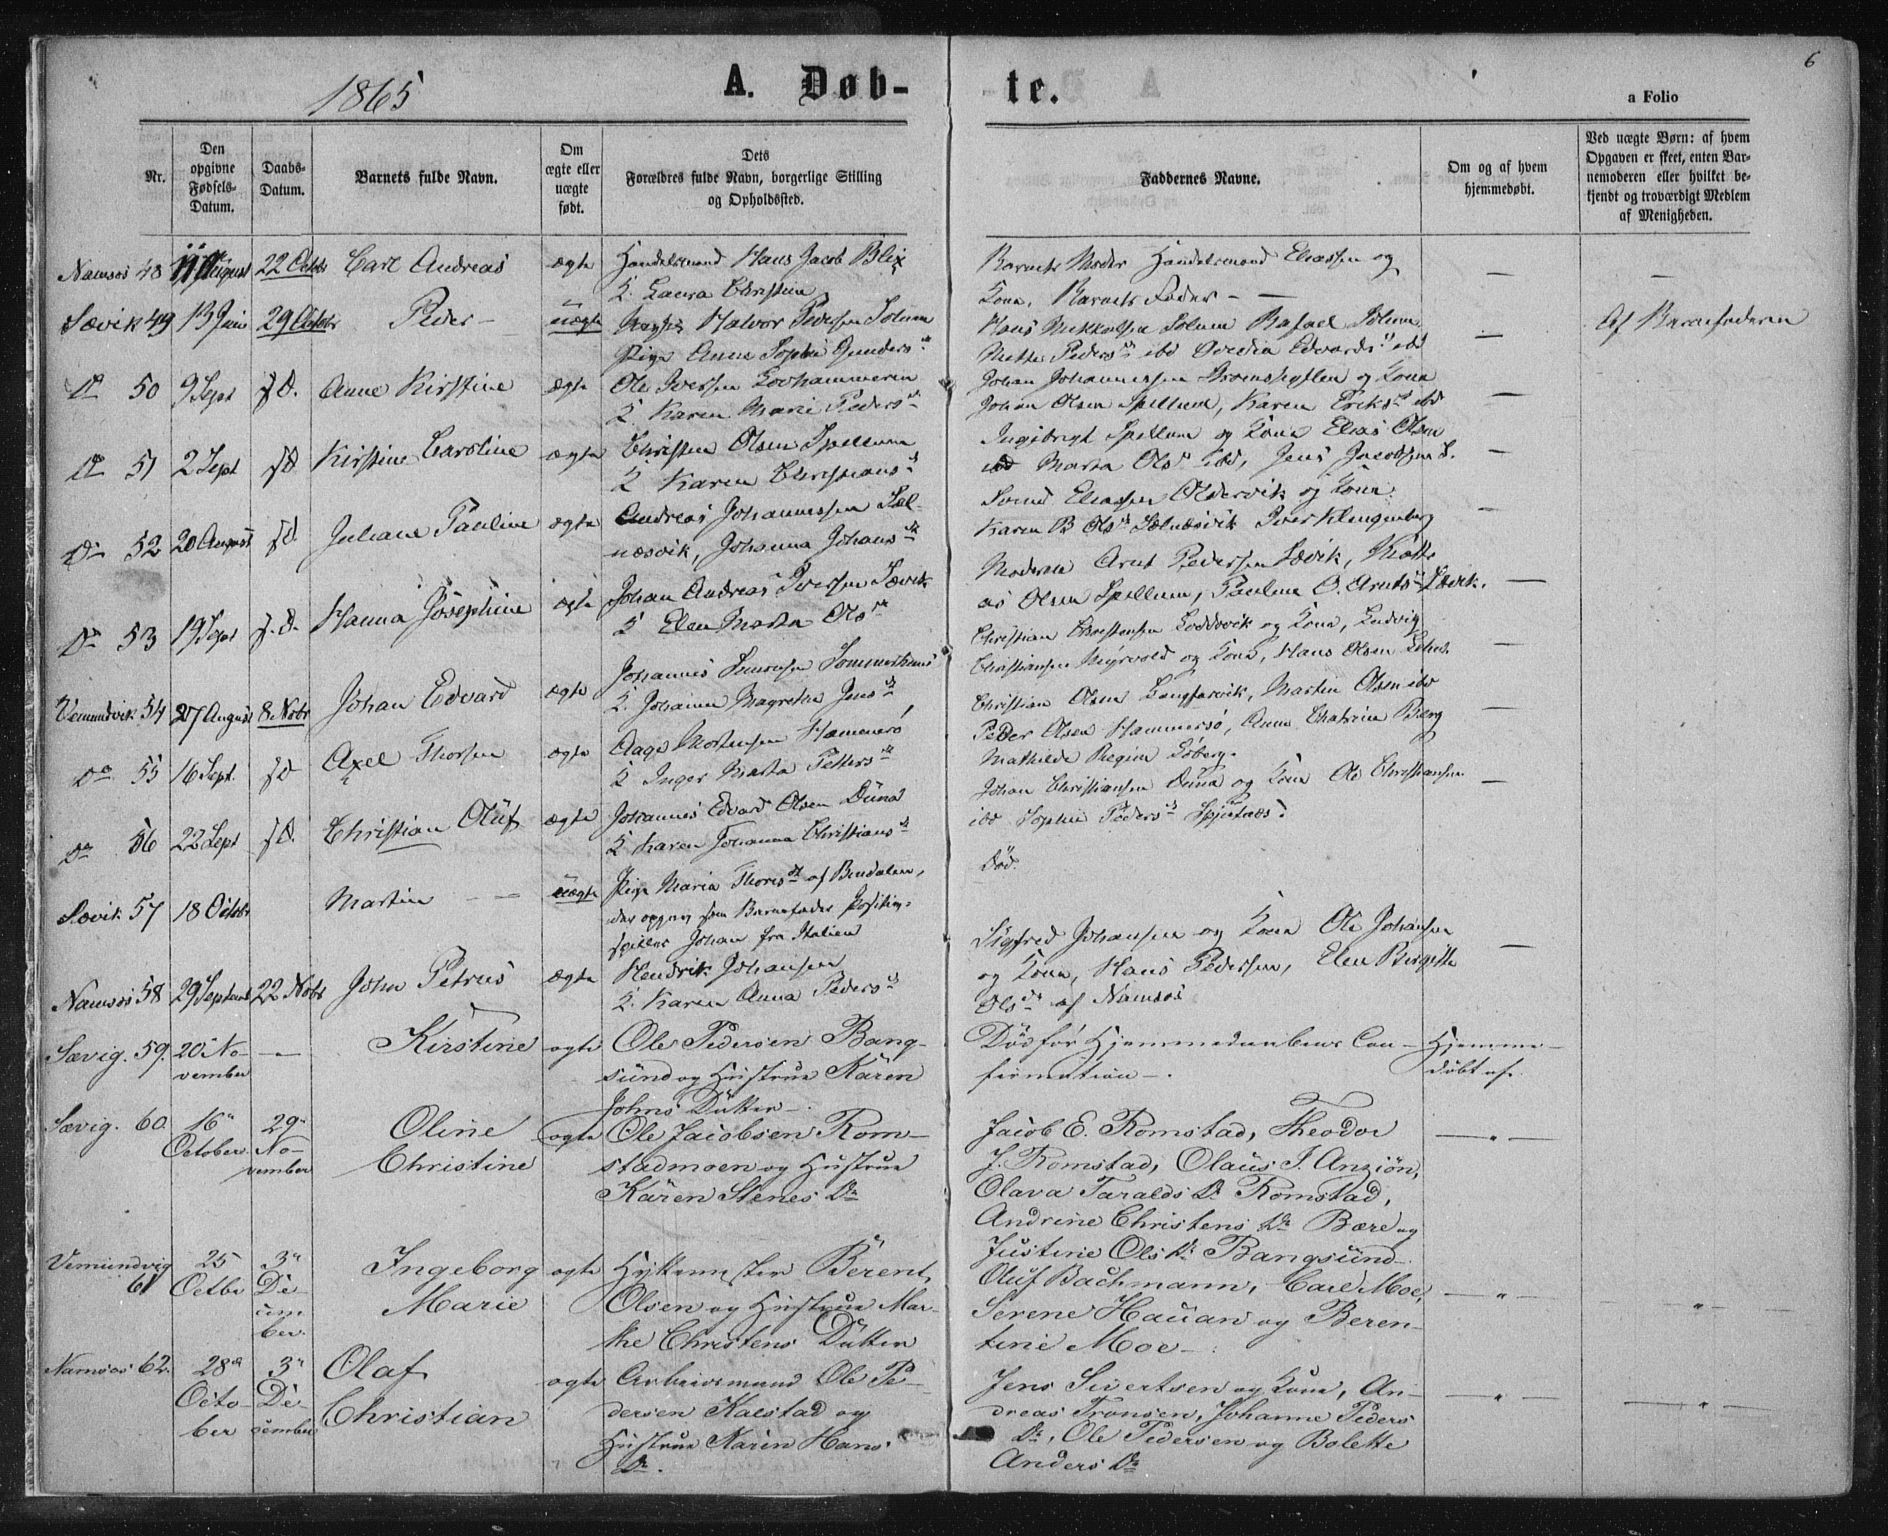 6
1865
A. Døb-
te.
a Folio
Nr.
Den
opgivne
Fødsels-
Datum.
Daabs-
Datum.
Barnets fulde Navn.
Om
ægte eller
uægte
født.
Dets
Forældres fulde Navn, borgerlige Stilling
og Opholdssted.
Faddernes Navne.
Om og af hvem
hjemmedøbt.
Ved uægte Børn: af hvem
Opgaven er skeet, enten Bar-
nemoderen eller hvilket be-
kjendt og troværdigt Medlem
af Menigheden.
Namsos 48 11 August 22 Octobr Carl Andreas ægte Handelsmand Hans Jacob Blix
K. Laura Christine
Barnets Moder Handelsmand Eliassen og
Kone, Barnets Fader — —
Sævik 49 13 Juni 29 Octobr Peder — uægte Halvor Pedersen Solum
Pige Anne Sophie Gunders
Hans Mikkelsen Solum Rafael Solum
Mette Peders ibd Edvards ibd
Af Barnefaderen
Do 50 9 Sept s.d. Anne Kirstine ægte Ole Iversen Lovhammeren
K Karen Marie Peders
Johan Johannessen og Kone
Johan Olsen Spellum, Karen Eriks ibd
Do 51 2 Sept s.d. Kirstine Caroline ægte Christen Olsen Spellum
K Karen Christians
Ingebrigt Spellum og Kone Elias Olsen
ibd Marta Ols ibd, Jens Jacobsen S.
Do 52 20 August s.d. Juliane Pauline ægte Andreas Johannessen Sæl-
næsvik, Johanna Johans
Svend Eliassen Aldervik og Kone
Karen B Ols Sælnæsvik Iver Klingenberg
Do 53 19 Sept s.d. Hanna Josephine ægte Johan Andreas Iversen Sævik
K Elen Marta Ols
Moderen Arnt Pedersen Sævik, Matti-
as Olsen Spellum, Pauline O. Arnts Sævik.
Vemundvik 54 27 August 8 Nobr Johan Edvard ægte Johannes Simonsen
K. Johanna Magretha Jens
Christian Christensen og Kone, Ludvig
Christiansen Myrvold og Kone, Hans Olsen
Do 55 16 Sept. s.d. Axel Thorsen ægte Aage Mortensen Hammersø
K Inger Marta Petters
Christian Olsen, Morten Olsen ibd
Peder Olsen Hammersø, Anne Chatrine Berg
Mathilde Regine
Do 56 22 Sept s.d. Christian Oluf ægte Johannes Edvard Olsen Duna
K Karen Johanna Christians
Johan Christiansen Duna og Kone Ole Christiansen
ibd Sophie Peders
Sævik 57 18 Octobr Martin — — uægte Pige Maria Thores af Bindalen,
der opgav som Barnefader Positiv-
spiller Johan fra Italien
Død.
Namsos 58 29 Septemb 22 Nobr John Petrus ægte Hendrik Johansen
K. Karen Anna Peders
Sigfred Johansen og Kone Ole Johansen
og Kone, Hans Pedersen, Elen Birgitte
Ols af Namsos
Sævig. 59. 20 No-
vember — Kirstine ægte Ole Pedersen Bang-
sund og Hustrue Karen
Johns Datter —.
Død før Hjemmedaabens Con-
firmation —.
Hjemme-
døbt af
Sævig. 60. 16
October 29
No-
vember Oline
Christine ægte Ole Jacobsen Rom-
stadmoen og Hustrue
Karen Stenes Dr
Jacob E. Romstad, Theodor
J. Romstad, Olaus J. Anziøn,
Olava Taralds Dr Romstad,
Andrine Christens Dr Bære og
Justine Ols Dr Bangsund
Vemundvig
61 25
Octbr 3
De-
cem-
ber. Ingeborg
Marie ægte Hyttemester Berent
Olsen og Hustrue Mar-
the Christens Datter
Oluf Bachmann, Carl Moe,
Serene Hauan og Beren-
tine Moe —.
Namsos 62. 28
Octo-
ber 3
De-
cember Olaf
Christian ægte Arbeidsmand Ole Pe-
dersen Kalstad og
Hustrue Karen Hans
Dr.
Jens Sivertsen og Kone, An-
dreas Tronsen, Johanne Peders
Dr, Ole Pedersen og Bolette
Anders Dr